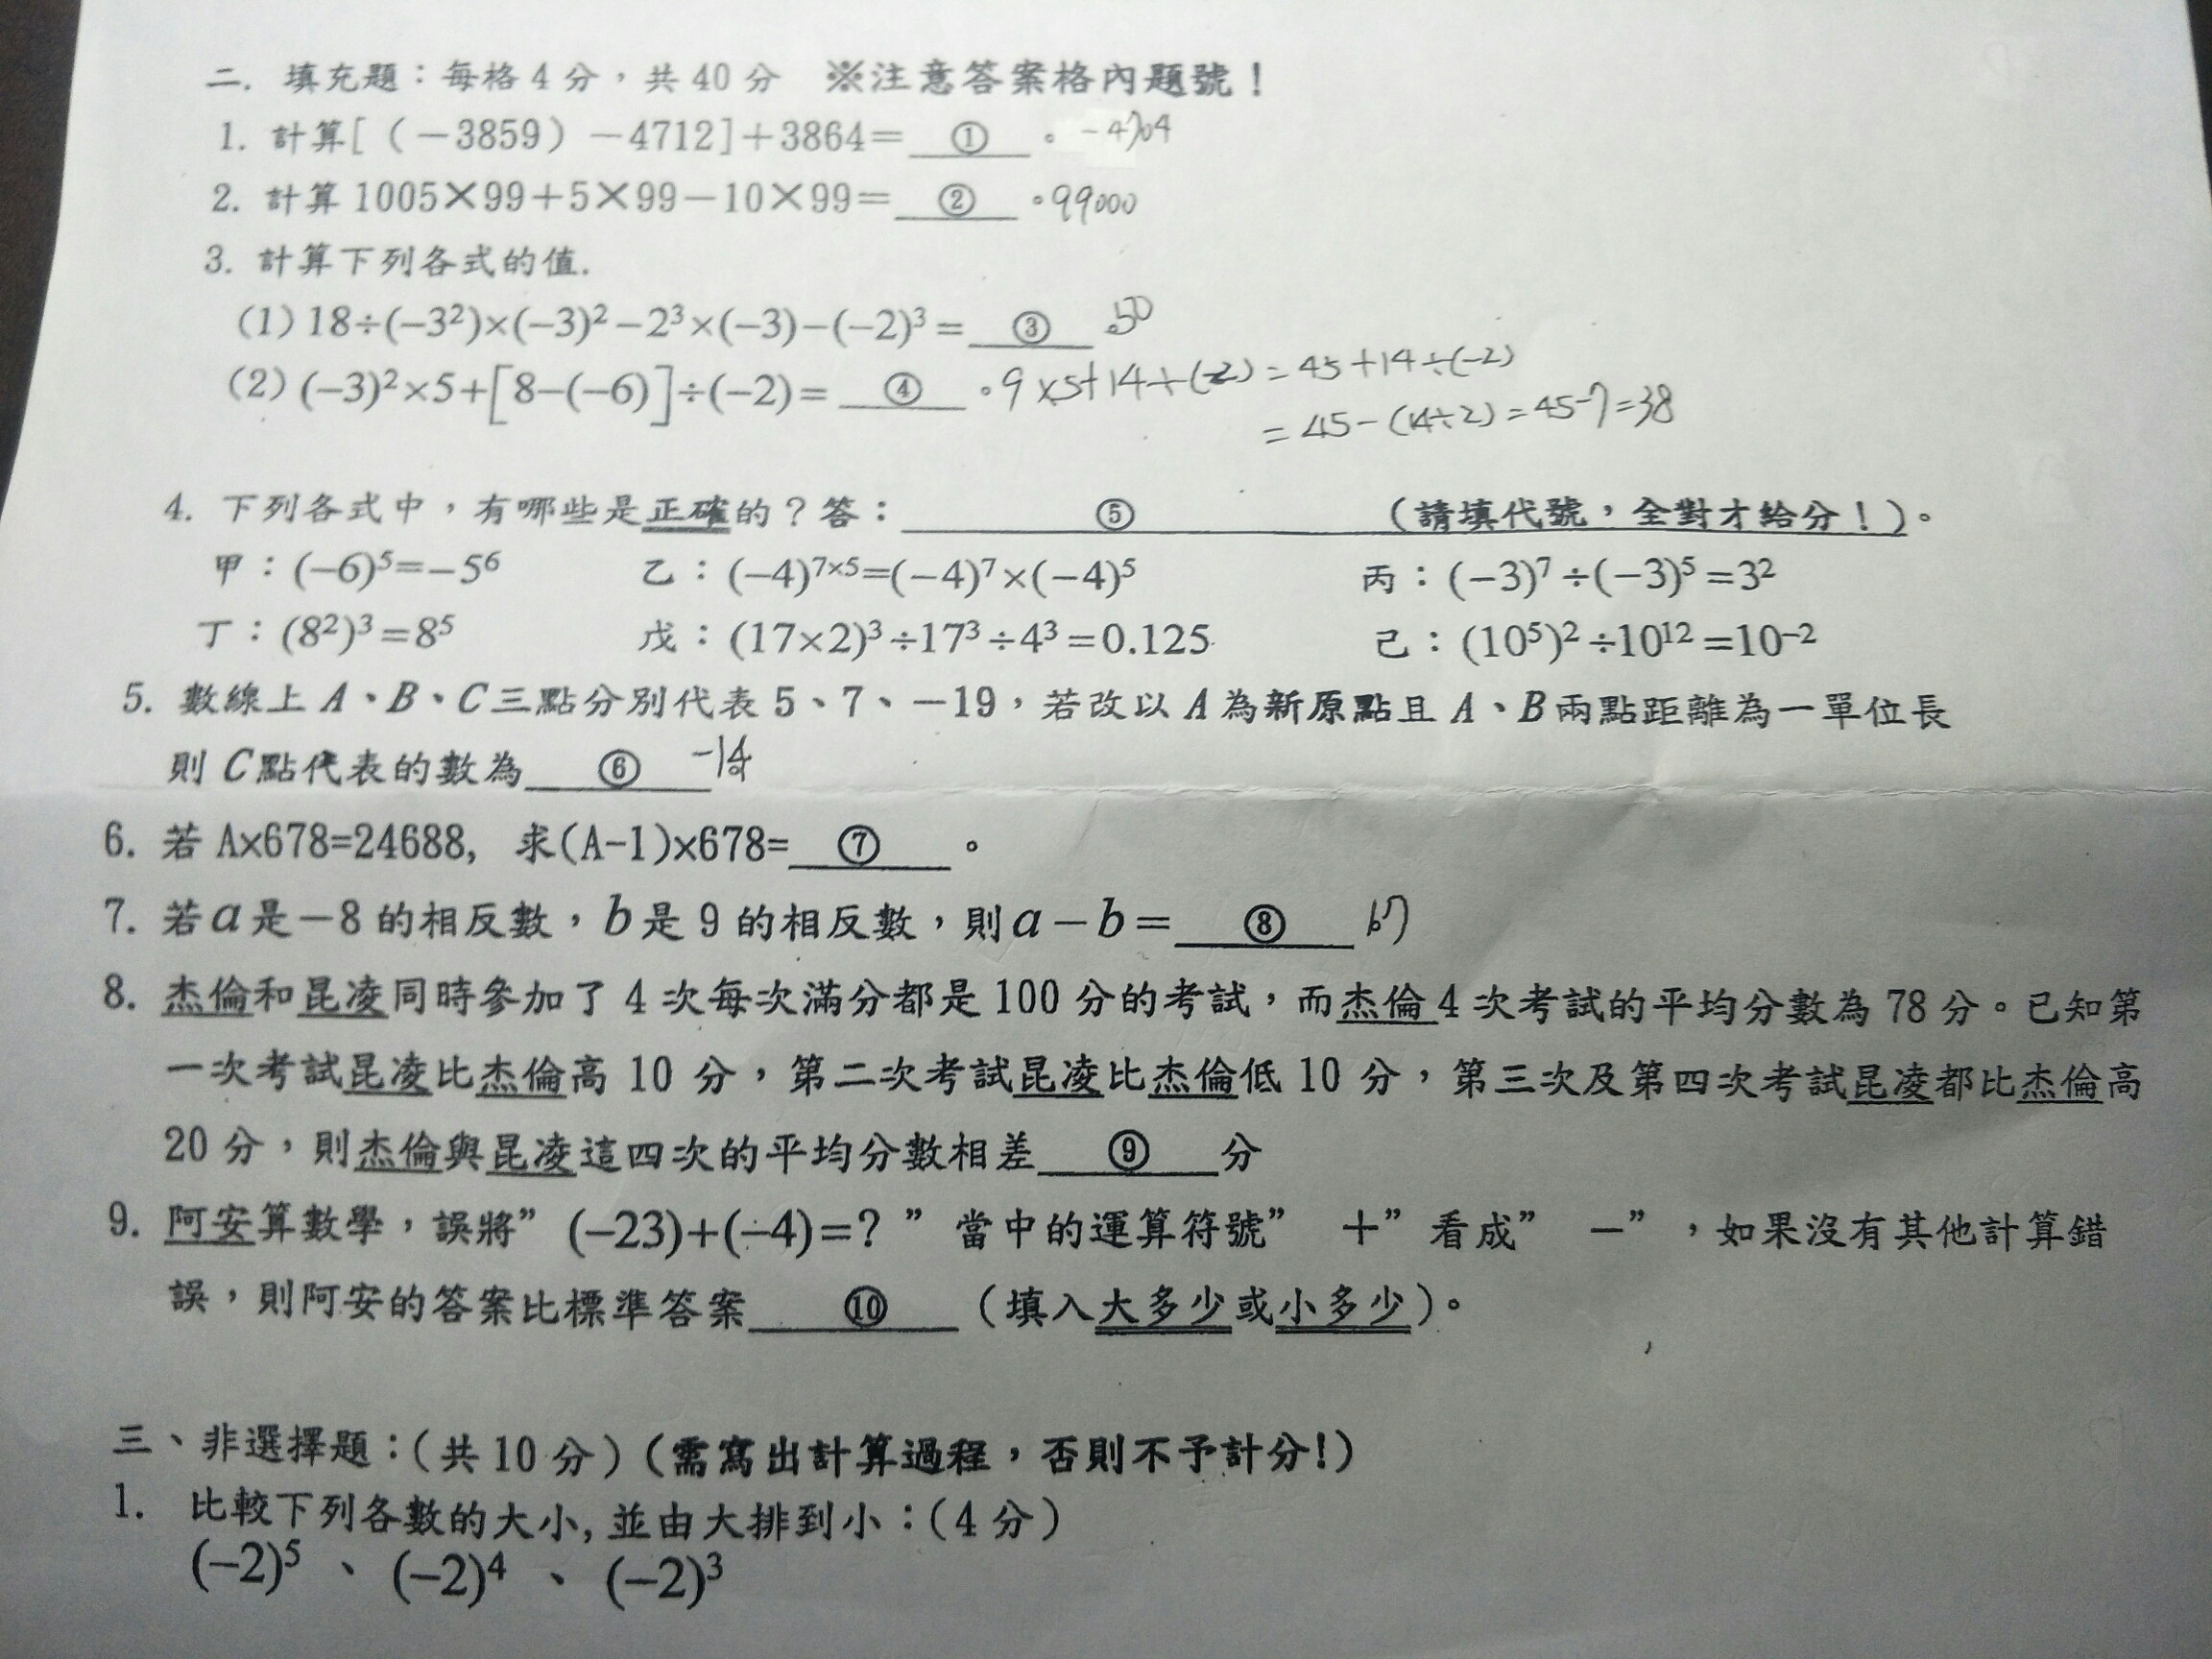 二. 填充題：每格4分，共40分 ※注意答案格內題號！
1. 計算[（－3859）－4712]＋3864＝ ① 。 -4704
2. 計算1005×99＋5×99－10×99＝ ② 。99000
3. 計算下列各式的值.
(1) 18÷(−3²)×(−3)²−2³×(−3)−(−2)³＝ ③ .50
(2) (−3)²×5+[8−(−6)]÷(−2)＝ ④ 。9×5+14÷(-2)=45+14÷(-2)
=45-(14÷2)=45-7=38
4. 下列各式中，有哪些是正確的？答： ⑤ （請填代號，全對才給分！）。
甲：(−6)⁵=−5⁶ 乙：(−4)⁷ˣ⁵=(−4)⁷×(−4)⁵ 丙：(−3)⁷÷(−3)⁵=3²
丁：(8²)³=8⁵ 戊：(17×2)³÷17³÷4³=0.125 己：(10⁵)²÷10¹²=10⁻²
5. 數線上A、B、C三點分別代表5、7、－19，若改以A為新原點且A、B兩點距離為一單位長
則C點代表的數為 ⑥ -14
6. 若A×678=24688, 求(A-1)×678= ⑦ 。
7. 若a是－8的相反數，b是9的相反數，則a－b＝ ⑧
8. 杰倫和昆凌同時參加了4次每次滿分都是100分的考試，而杰倫4次考試的平均分數為78分。已知第
一次考試昆凌比杰倫高10分，第二次考試昆凌比杰倫低10分，第三次及第四次考試昆凌都比杰倫高
20分，則杰倫與昆凌這四次的平均分數相差 ⑨ 分
9. 阿安算數學，誤將”(−23)+(−4)=?”當中的運算符號”＋”看成”－”，如果沒有其他計算錯
誤，則阿安的答案比標準答案 ⑩ （填入大多少或小多少）。
三、非選擇題：(共10分)（需寫出計算過程，否則不予計分!）
1. 比較下列各數的大小,並由大排到小：(4分)
(−2)⁵、(−2)⁴、(−2)³